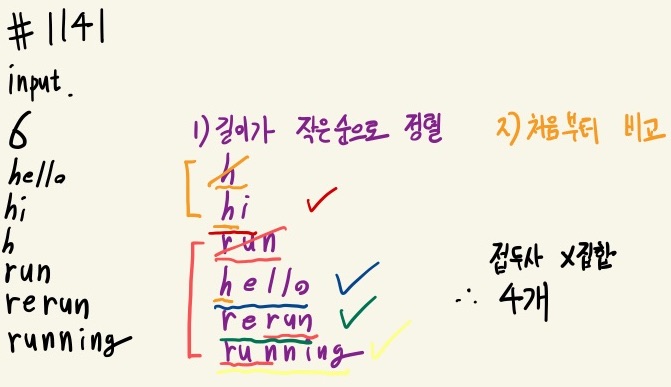 #1141
input.
6
hello
hi
h
run
rerun
running
1) 길이가 작은순으로 정렬
h
hi
run
hello
rerun
running
2) 처음부터 비교
접두사 X집합
∴ 4개